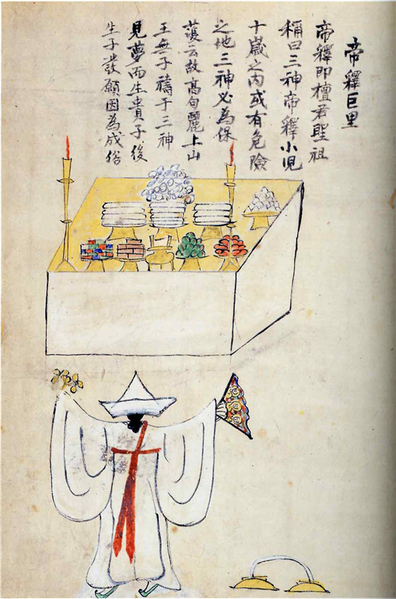 帝釋巨里
帝釋即檀君聖祖
稱曰三神帝釋小兒
十歲之內或有危險
之地三神必為保
護云故高句麗上山
王無子禱于三神
見夢而生貴子後
生子發願因為成俗